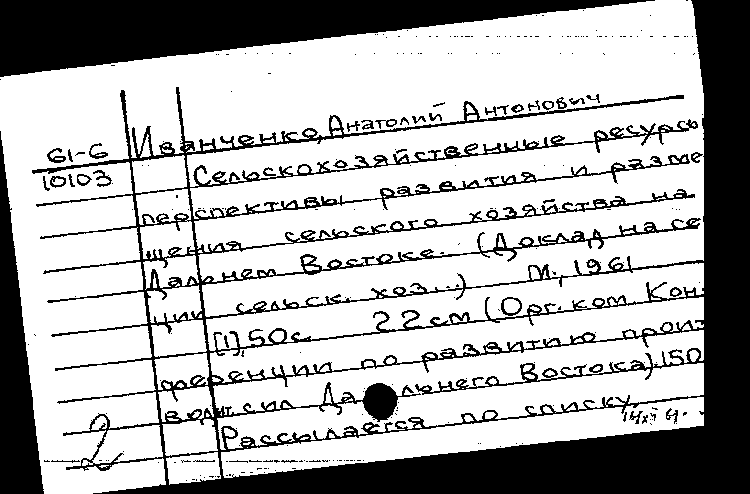 61-6
10103
Иванченко, Анатолий Антонович
Сельскохозяйственные ресурсы
перспективы развития и разме
щения сельского хозяйства на
Дальнем Востоке. (Доклад на се
ции сельск. хоз...) М., 1961
[1], 50 с. 22 см (Орг. ком. Кон-
ференции по развитию произ
водит. сил Дальнего Востока). 150
Рассылается по списку.
2